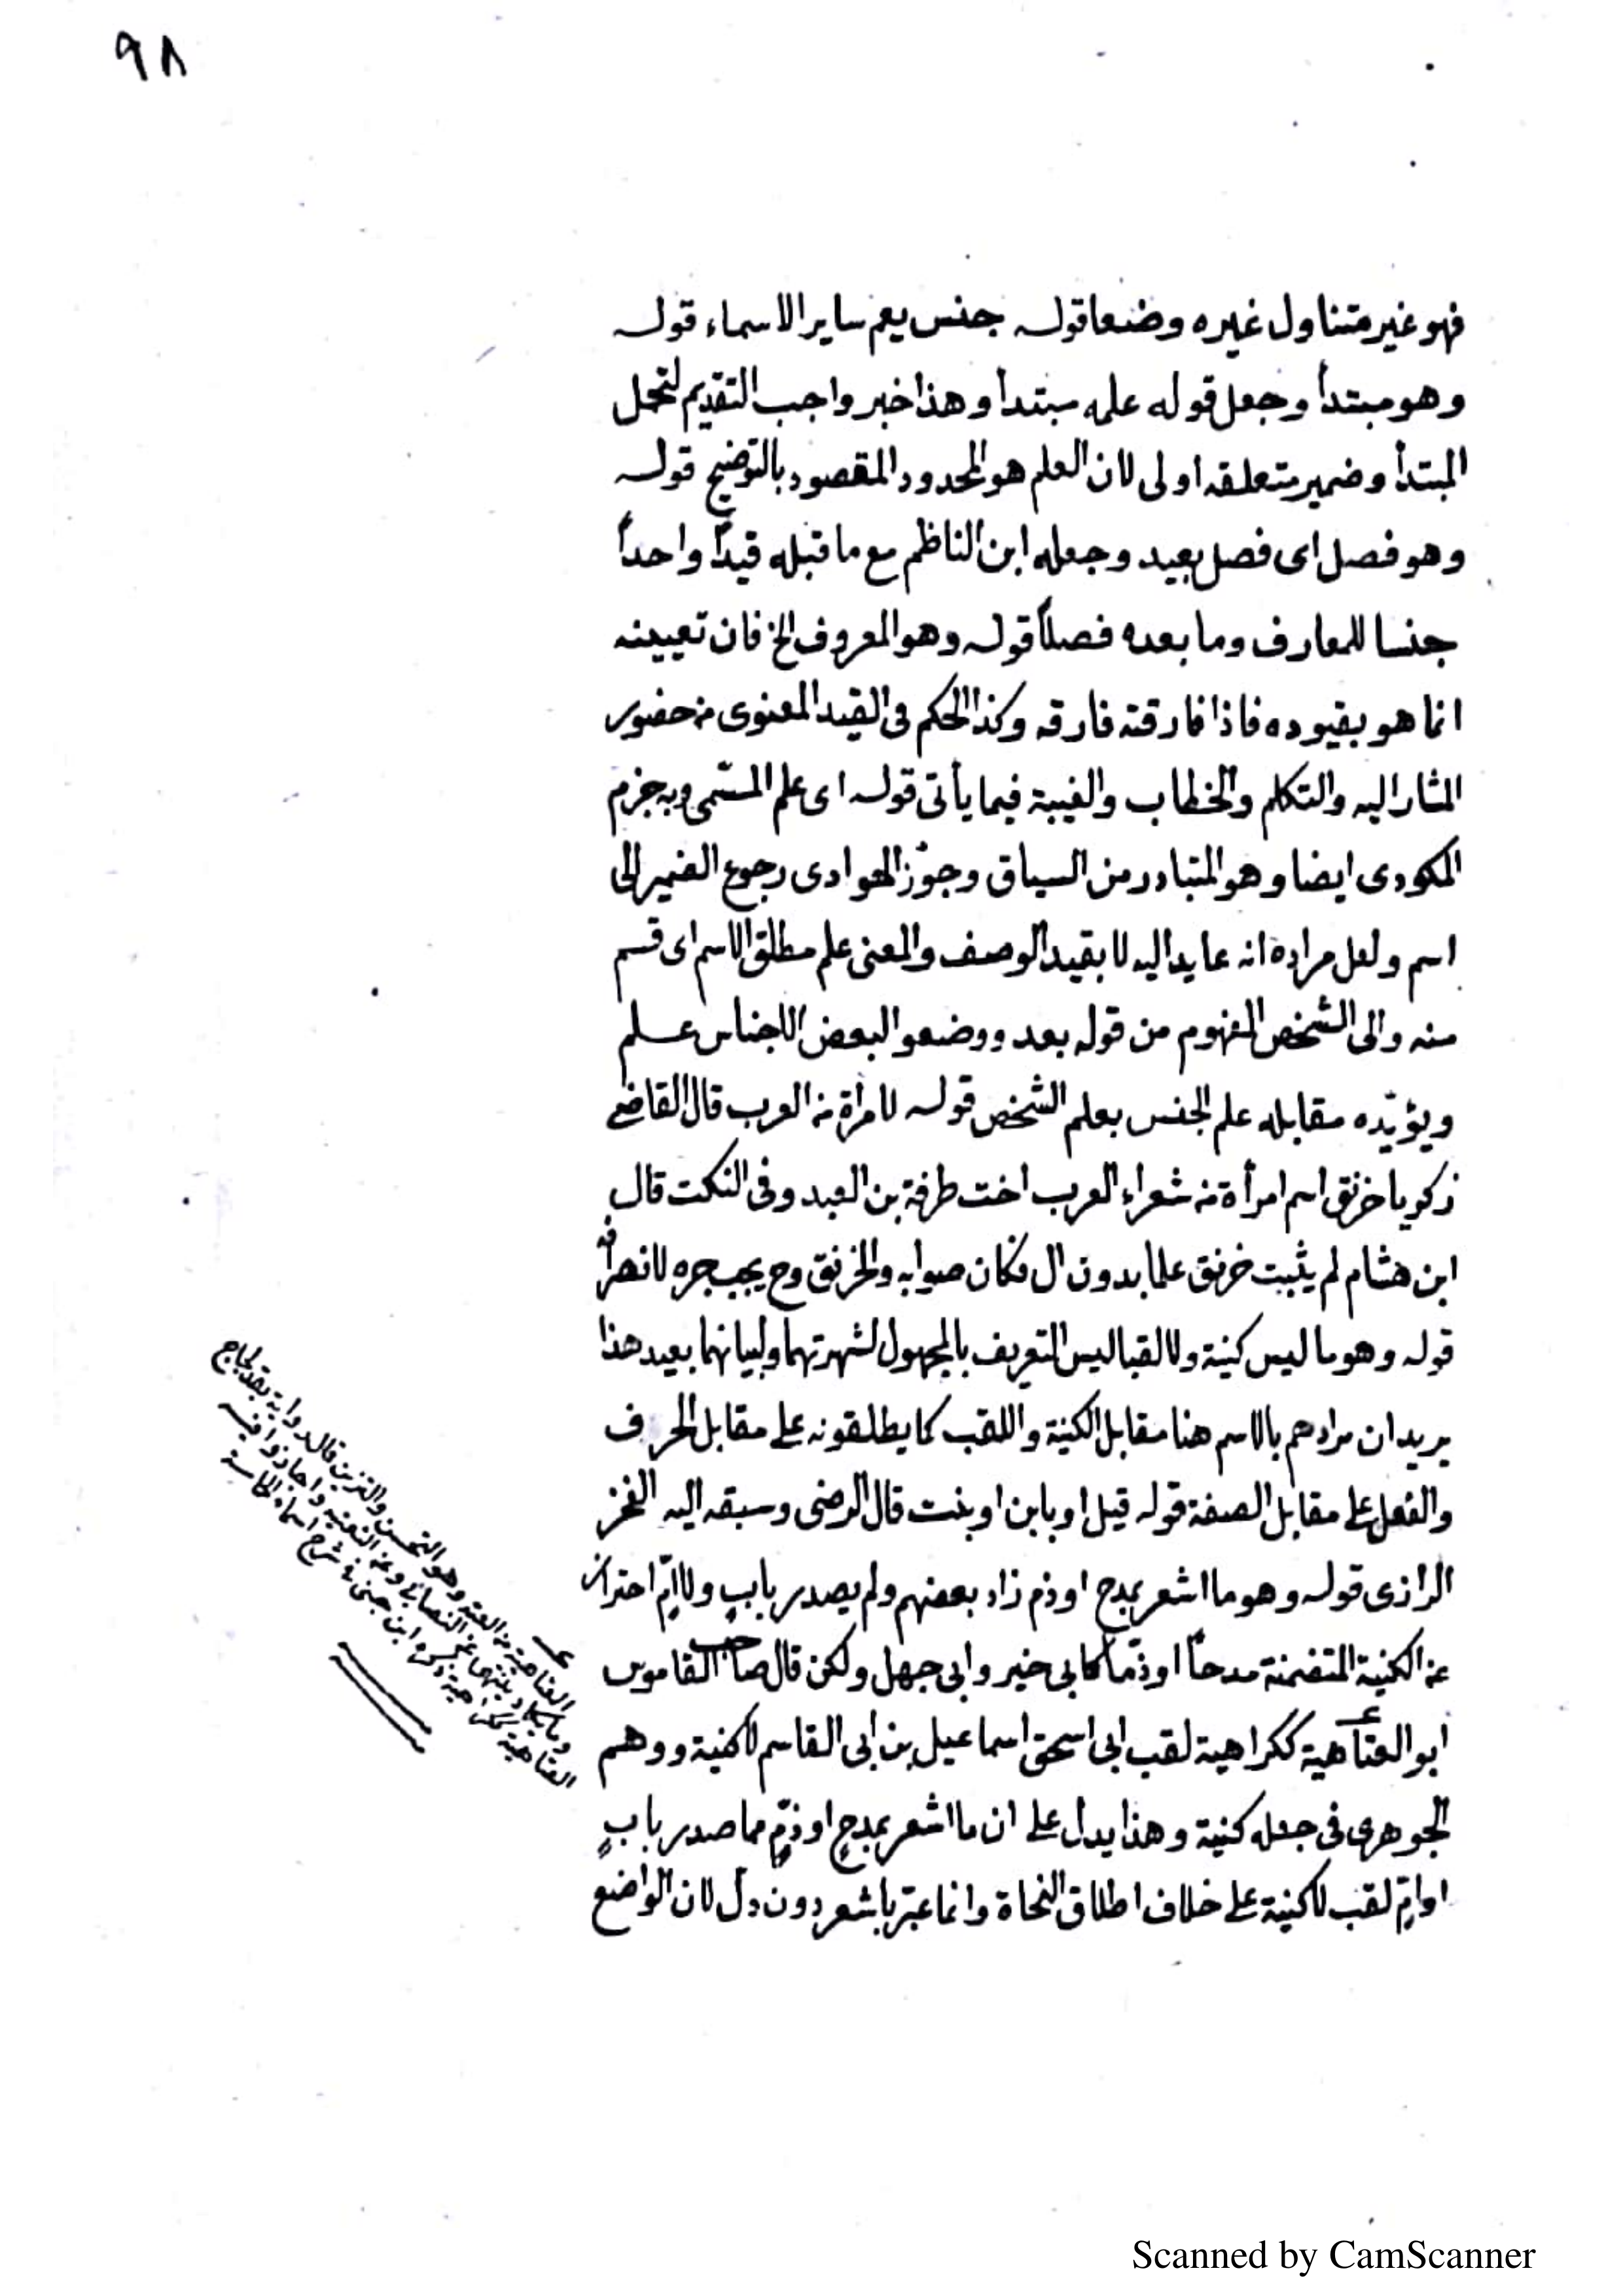 ٩٨
فهو غير متناول غيره وضعا قوله جنس يعم ساير الاسماء قوله
وهو مبتدأ وجعل قوله علمه مبتدأ وهذا خبر واجب التقديم لتحمل
المبتدأ وضمير متعلقه اولى لان العلم هو المحدود المقصود بالتوضيح قوله
وهو فصل اى فصل بعيد وجعله ابن الناظم مع ما قبله قيداً واحداً
جنسا للمعارف وما بعده فصلاً قوله وهو المعروف الخ فان تعيينه
انما هو بقيوده فاذا فارقته فارقه وكذا الحكم فى القيد المعنوى من حضور
المشار اليه والتكلم والخطاب والغيبة فيما يأتى قوله اى علم المسمّى وبه جزم
المكودى ايضا وهو المتبادر من السياق وجوّز الهوادى رجوع الضمير الى
اسم ولعل مراده انه عايد اليه لا بقيد الوصف والمعنى علم مطلق الاسم اى قسم
منه والى الشخص المفهوم من قوله بعد ووضعوا لبعض الاجناس علم
ويؤيّده مقابله علم الجنس بعلم الشخص قوله لامرأة من العرب قال القاضى
زكريا خرنق اسم امرأة من شعراء العرب اخت طرفة بن العبد وفى النكت قال
ابن هشام لم يثبت خرنق علما بدون ال فكان صوابه والخرنق وح يجب جره لانصرافه
قوله وهو ما ليس كنية ولا لقبا ليس التعريف بالمجهول لشهرتهما ولبيانهما بعيد هذا
يريد ان مرادهم بالاسم هنا مقابل الكنية واللقب كما يطلقونه على مقابل الحرف
والفعل على مقابل الصفة قوله قيل او بابن او بنت قال الرضى وسبقه اليه الفخر
الرازى قوله وهو ما اشعر بمدح او ذم زاد بعضهم ولم يصدر بابٍ ولا امّ احترازا
عن الكنية المتضمنة مدحاً او ذمّا كابى خير وابى جهل ولكن قال صاحب القاموس
ابو العتاهية ككراهية لقب ابى اسحق اسماعيل بن ابى القاسم لا كنية ووهم
الجوهرى فى جعله كنية وهذا يدل على ان ما اشعر بمدحٍ او ذمٍّ مما صدر بابٍ
او امّ لقب لا كنية على خلاف اطلاق النحاة وانما عبّر باشعر دون دلّ لان الواضع
العتاهية من العته وهو التحسن والتزين قال
العتاهية ككراهية ذكره ابن جنى فى شرح اسماء الحماسة
Scanned by CamScanner